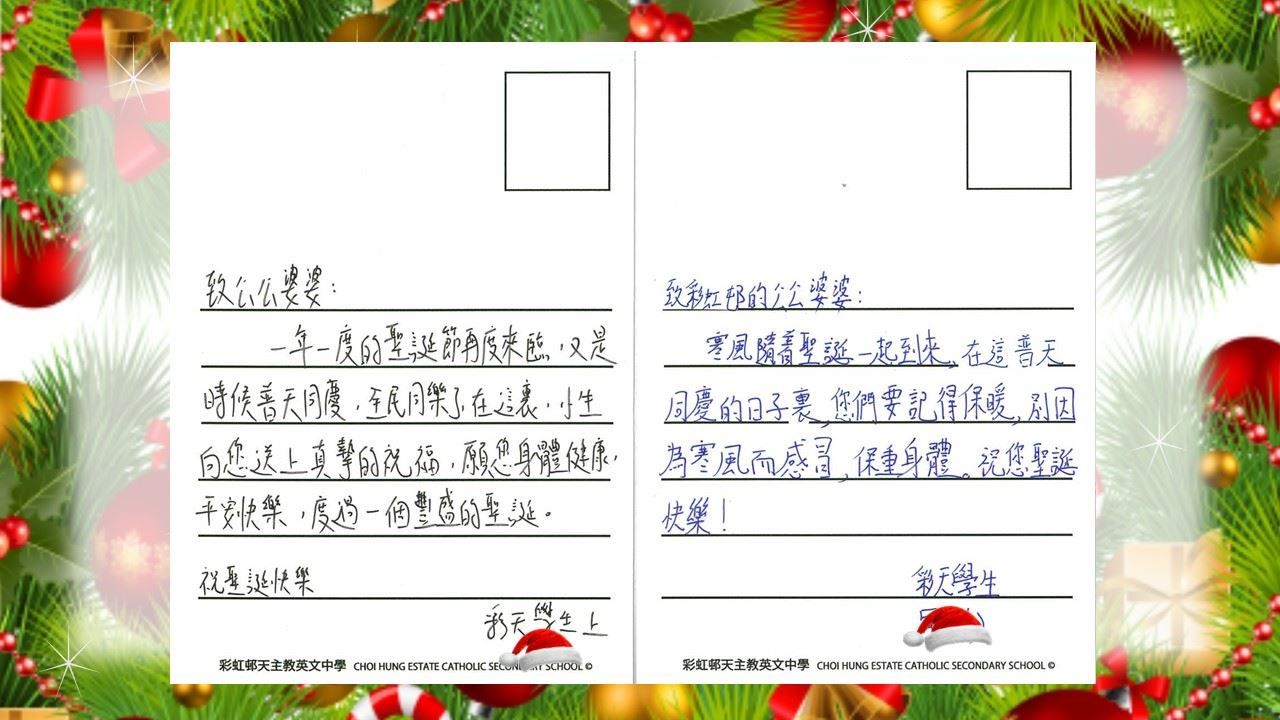 致公公婆婆：
一年一度的聖誕節再度來臨，又是
時候普天同慶，全民同樂了，在這裏，小生
向您送上真摯的祝福，願您身體健康，
平安快樂，度過一個豐盛的聖誕。
祝聖誕快樂
彩天學生上
彩虹邨天主教英文中學 CHOI HUNG ESTATE CATHOLIC SECONDARY SCHOOL ©
致彩虹邨的公公婆婆：
寒風隨着聖誕一起到來，在這普天
同慶的日子裏，您們要記得保暖，別因
為寒風而感冒，保重身體。祝您聖誕
快樂！
彩天學生
彩虹邨天主教英文中學 CHOI HUNG ESTATE CATHOLIC SECONDARY SCHOOL ©